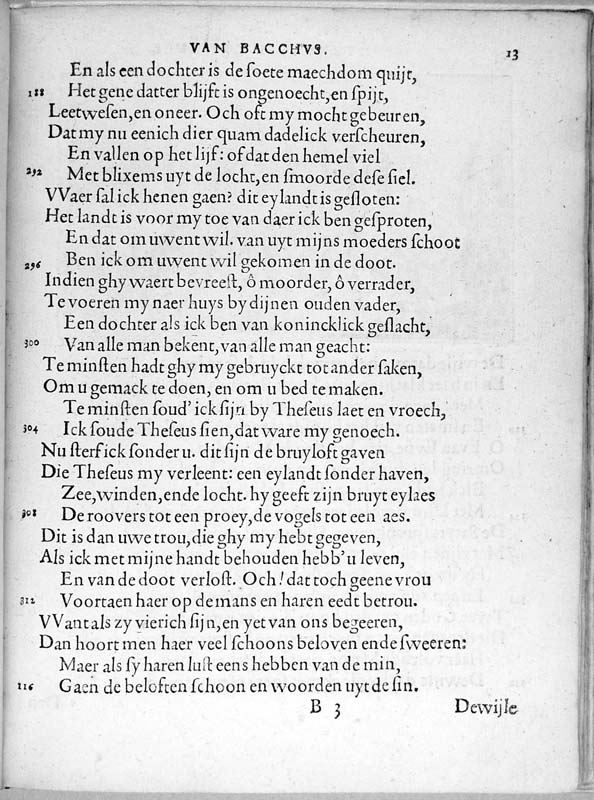 VAN BACCHVS. 13
En als een dochter is de soete maechdom quijt,
188 Het gene datter blijft is ongenoecht, en spijt,
Leetwesen, en oneer. Och oft my mocht gebeuren,
Dat my nu eenich dier quam dadelick verscheuren,
En vallen op het lijf: of dat den hemel viel
292 Met blixems uyt de locht, en smoorde dese siel.
VVaer sal ick henen gaen? dit eylandt is gesloten:
Het landt is voor my toe van daer ick ben gesproten,
En dat om uwent wil. van uyt mijns moeders schoot
296 Ben ick om uwent wil gekomen in de doot.
Indien ghy waert bevreest, ô moorder, ô verrader,
Te voeren my naer huys by dijnen ouden vader,
Een dochter als ick ben van konincklick geslacht,
300 Van alle man bekent, van alle man geacht:
Te minsten hadt ghy my gebruyckt tot ander saken,
Om u gemack te doen, en om u bed te maken.
Te minsten soud' ick sijn by Theseus laet en vroech,
304 Ick soude Theseus sien, dat ware my genoech.
Nu sterf ick sonder u. dit sijn de bruyloft gaven
Die Theseus my verleent: een eylandt sonder haven,
Zee, winden, ende locht. hy geeft zijn bruyt eylaes
308 De roovers tot een proey, de vogels tot een aes.
Dit is dan uwe trou, die ghy my hebt gegeven,
Als ick met mijne handt behouden hebb' u leven,
En van de doot verlost. Och! dat toch geene vrou
312 Voortaen haer op de mans en haren eedt betrou.
VVant als zy vierich sijn, en yet van ons begeeren,
Dan hoort men haer veel schoons beloven ende sweeren:
Maer als sy haren lust eens hebben van de min,
116 Gaen de beloften schoon en woorden uyt de sin.
B 3 Dewijle